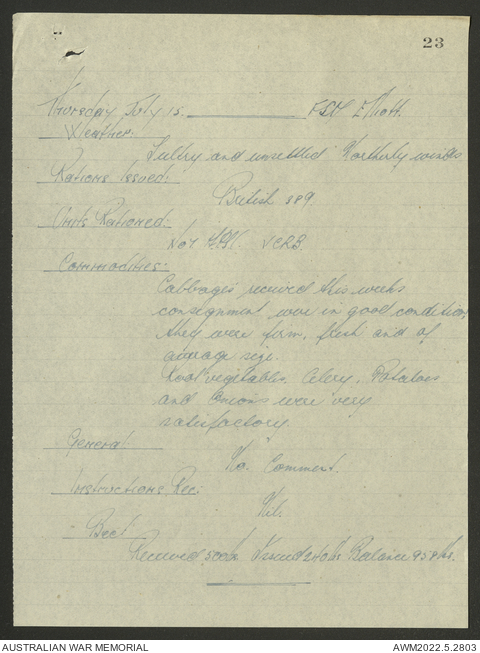 23
Thursday July 15. FSD Elliott.
Weather:
Sultry and unsettled Northerly winds
Rations Issued:
British 389.
Units Rationed:
No 1 VCRB.
Commodities:
Cabbages received this weeks
consignment were in good condition,
they were firm, fresh and of
average size.
Root vegitables, Celery, Potatoes
and Onions were very
satisfactory.
General
No. Comment.
Instructions Rec:
Nil.
Received 500 lbs Issued 240 lbs Balance 958 lbs.
AUSTRALIAN WAR MEMORIAL
AWM2022.5.2803